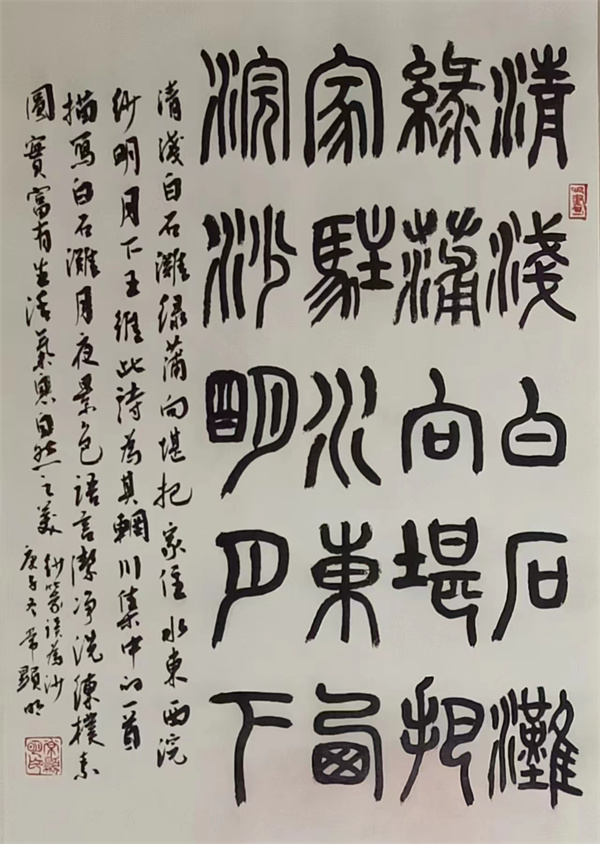 清淺白石灘
綠蒲向堪把
家駐水東西
浣沙明月下
清淺白石灘綠蒲向堪把家住水東西浣
紗明月下王維此詩為其輞川集中的一首
描寫白石灘月夜景色語言潔淨洗練樸素
圖實富有生活氣息自然之美
紗篆誤為沙
庚子冬常顯明
常顯明印